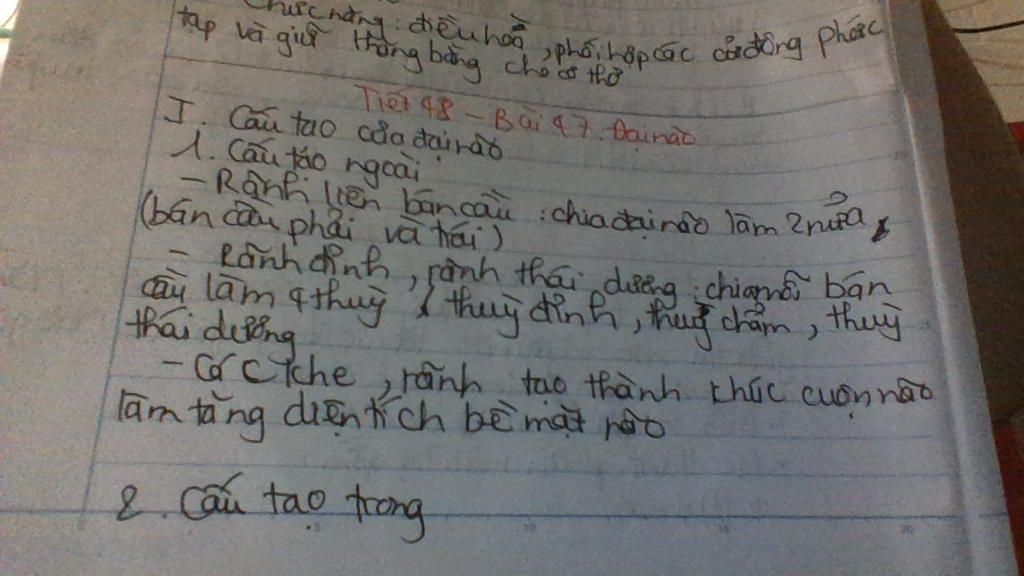 Chức năng: điều hoà, phối hợp các cử động phức
tạp và giữ thăng bằng cho cơ thể
Tiết 48 - Bài 47. Đại não
I. Cấu tạo của đại não
1. Cấu tạo ngoài
- Rãnh liên bán cầu: chia đại não làm 2 nửa
(bán cầu phải và trái)
- Rãnh đỉnh, rãnh thái dương: chia mỗi bán
cầu làm 4 thuỳ ( thuỳ đỉnh, thuỳ chẩm, thuỳ
thái dương
- Các khe, rãnh tạo thành khúc cuộn não
làm tăng diện tích bề mặt não
2. Cấu tạo trong